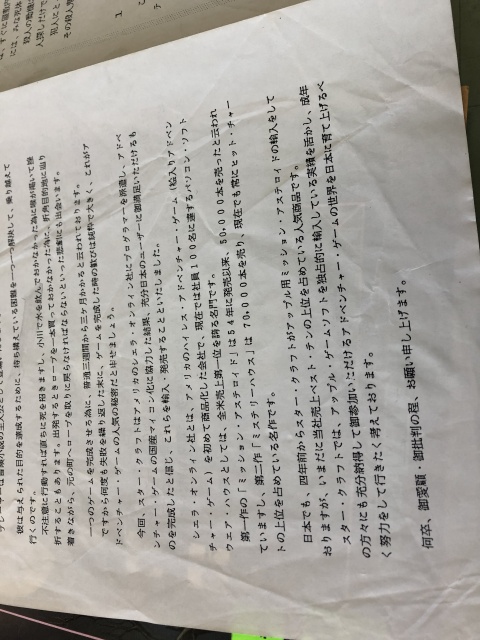 彼は与えられた目的を達成するために、待ち構えている困難を一つ一つ解決して、乗り越えて
行くのです。
不注意に行動すれば直ちに死を招きますし、小川で水を飲んでおかなかった為に喉が渇いて挫
折することもあります。出発するときロープを一本買っておかなかった為に、折角目的地に辿り
着きながら、元の町へロープを取りに戻らなければならないといった悲劇にも出会います。
一つのゲームを完成させる為に、普通三週間から三ヶ月かかると云われております。
ですから何度も失敗を繰り返した末に、ゲームを完成した時の歓びは純粋で大きく、これがア
ドベンチャー・ゲームの人気の秘密だと申せましょう。
今回、スター・クラフトはアメリカのシエラ・オンライン社にプログラマーを派遣し、アドベ
ンチャー・ゲームの国産マイコン化に協力した結果、充分日本のユーザーに御満足いただけるも
のを完成したと信じ、これらを輸入・発売することといたしました。
シエラ・オンライン社とは、アメリカのハイレス・アドベンチャー・ゲーム（絵入りアドベン
チャー・ゲーム）を初めて商品化した会社で、現在では社員１００名に達するパソコン・ソフト
ウェア・ハウスとしては、全米売上第一位を誇る名門です。
第一作の「ミッション・アステロイド」は５４年に発売以来、５０,０００本を売ったと云われ
ていますし、第二作「ミステリーハウス」は７０,０００本を売り、現在でも常にヒット・チャー
トの上位を占めている名作です。
日本でも、四年前からスター・クラフトがアップル用ミッション・アステロイドの輸入をして
おりますが、いまだに当社売上ベスト・テンの上位を占めている人気商品です。
スター・クラフトでは、アップル・ゲームソフトを独占的に輸入している実績を活かし、成年
の方々にも充分納得して御参加いただけるアドベンチャー・ゲームの世界を日本に育て上げるべ
く努力をして行きたく考えております。
何卒、御愛顧・御批判の程、お願い申し上げます。